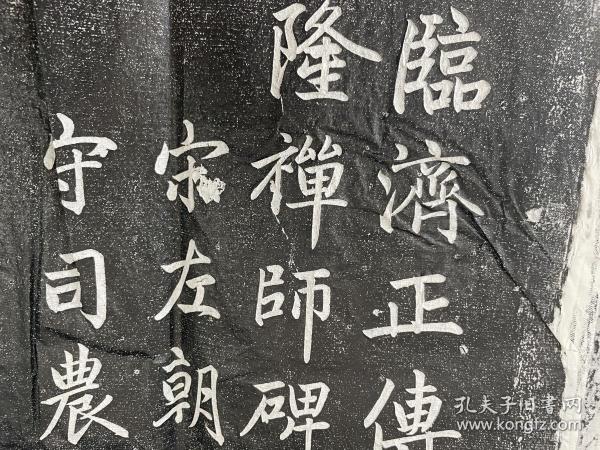 臨濟正傳
隆禪師碑
宋左朝
守司農
孔夫子旧书网
www.kongfz.com